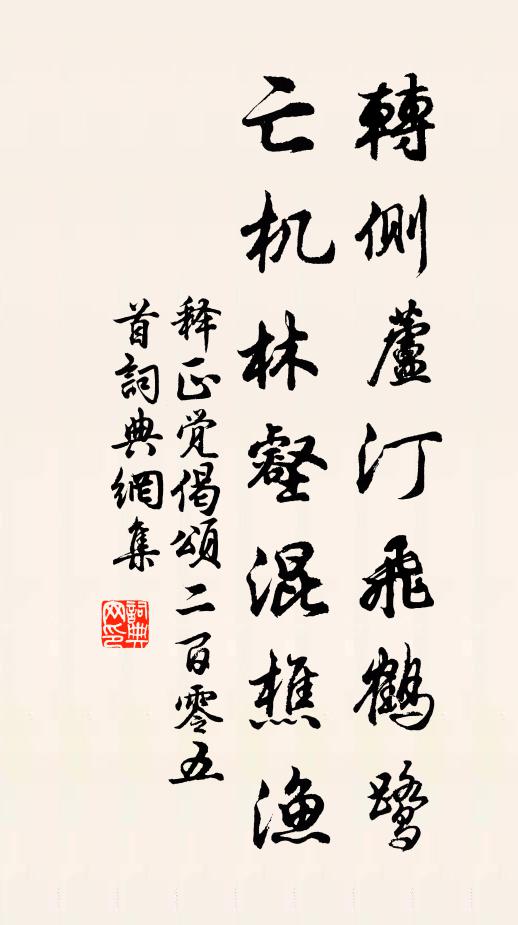 轉側蘆汀飛鶴鷺
亡机林壑混樵漁
释正觉偈頌二百零五
首詞典網集
詞典网印